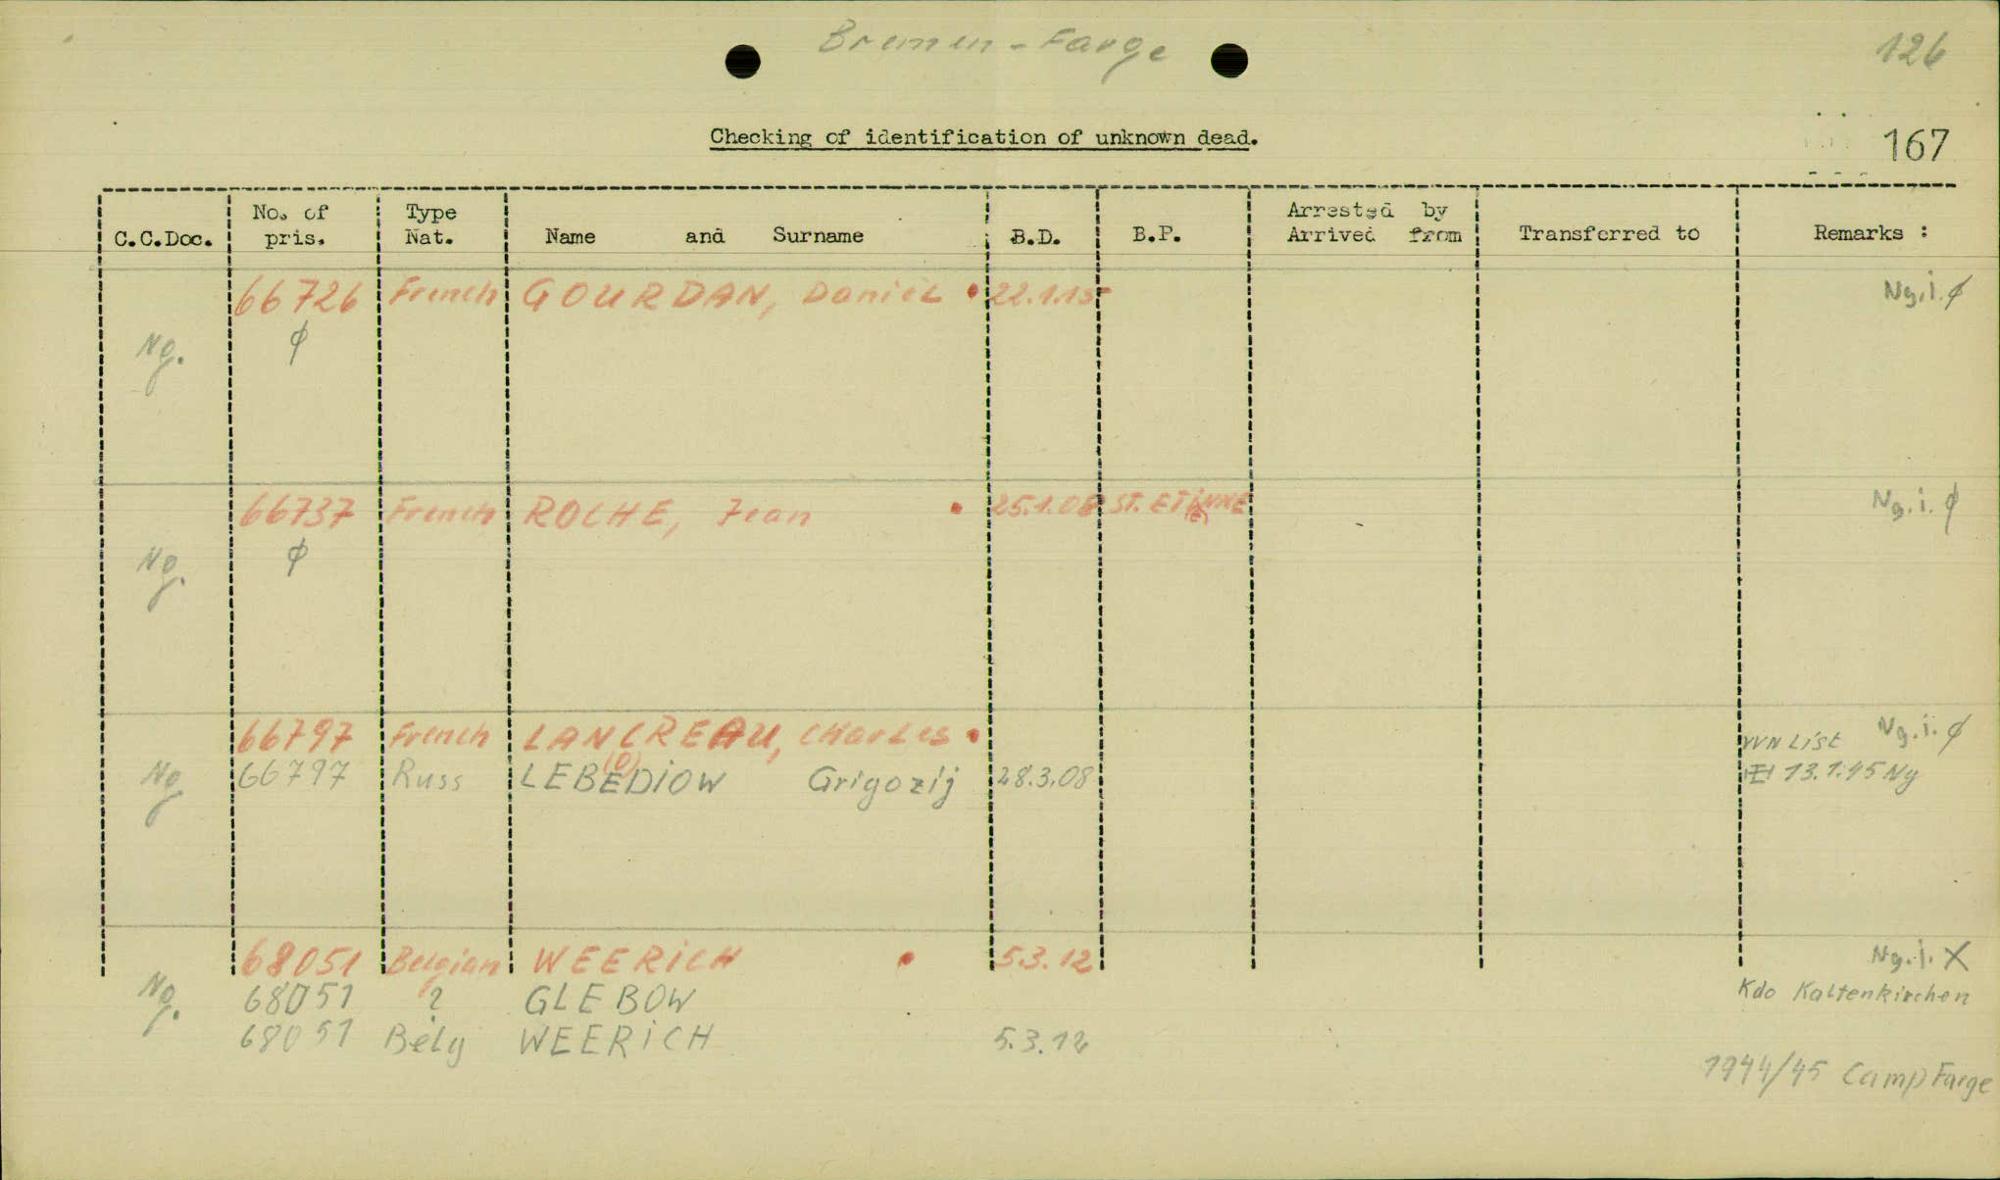 Bremen-Farge
126
Checking of identification of unknown dead.
167
C.C.Doc. No. of pris. Type Nat. Name and Surname B.D. B.P. Arrested by Arrived from Transferred to Remarks :
66726 French GOURDAN, Daniel • 22.1.15 Ng.i. ϕ
Ng. ϕ
66737 French ROCHE, Jean • 25.1.08 ST. ETIENNE Ng.i. ϕ
Ng. ϕ
66797 French LANCREAU, Charles • VVN List Ng.i. ϕ
(O)
Ng 66797 Russ LEBEDIOW Grigozij 28.3.08 13.1.45 Ng
68051 Belgian WEERICH • 5.3.12 Ng.i. X
Ng. 68051 ? GLEBOW Kdo Kaltenkirchen
68051 Belg WEERICH 5.3.12
1944/45 Camp Farge